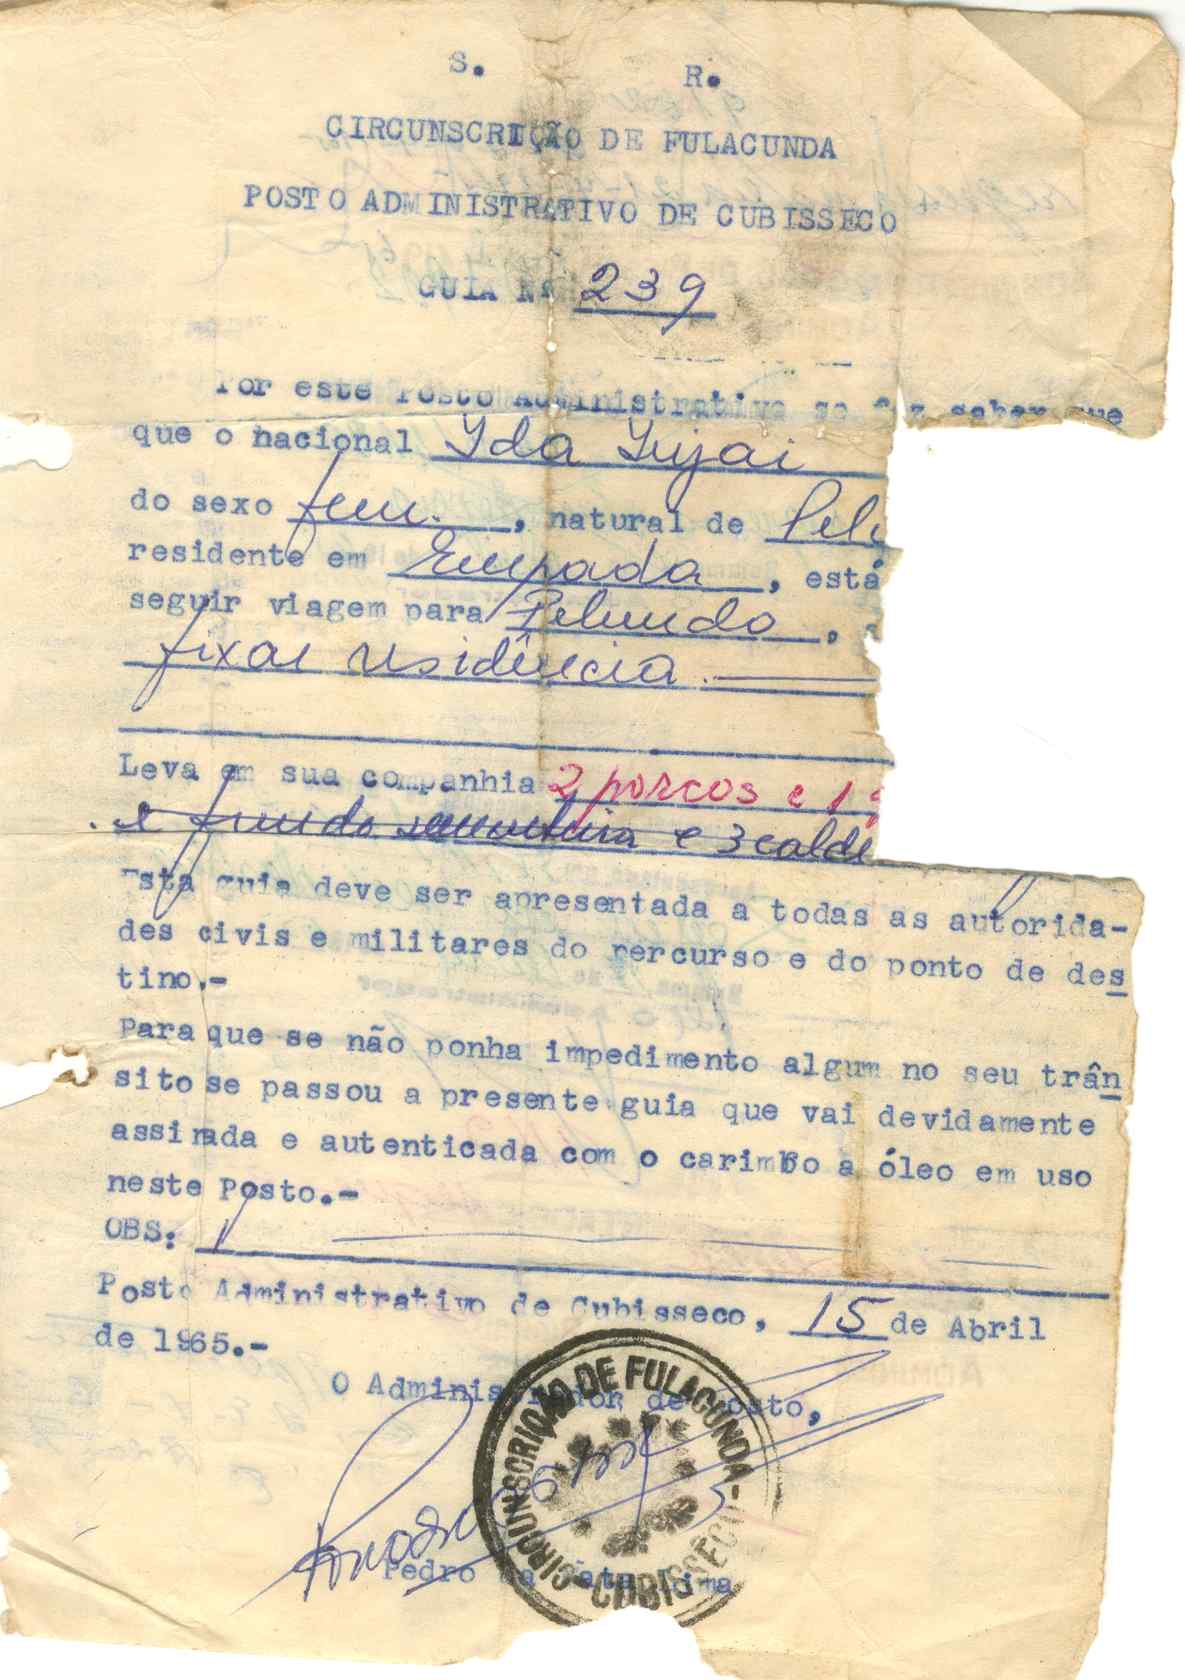 S. R.
CIRCUNSCRIÇÃO DE FULACUNDA
POSTO ADMINISTRATIVO DE CUBISSECO
GUIA Nº 239
Por este Posto Administrativo se faz saber que
que o nacional Yda Injai
do sexo fem., natural de Pelu
residente em Empada, está
seguir viagem para Pelundo,
fixar residência.
Leva em sua companhia 2 porcos e 1
e 3 calde
Esta guia deve ser apresentada a todas as autorida-
des civis e militares do percurso e do ponto de des
tino.-
Para que se não ponha impedimento algum no seu trân
sito se passou a presente guia que vai devidamente
assinada e autenticada com o carimbo a óleo em uso
neste Posto.-
OBS:
Posto Administrativo de Cubisseco, 15 de Abril
de 1965.-
O Administrador de Posto,
CIRCUNSCRIÇÃO DE FULACUNDA - CUBISSECO -
Pedro da Mata Lima